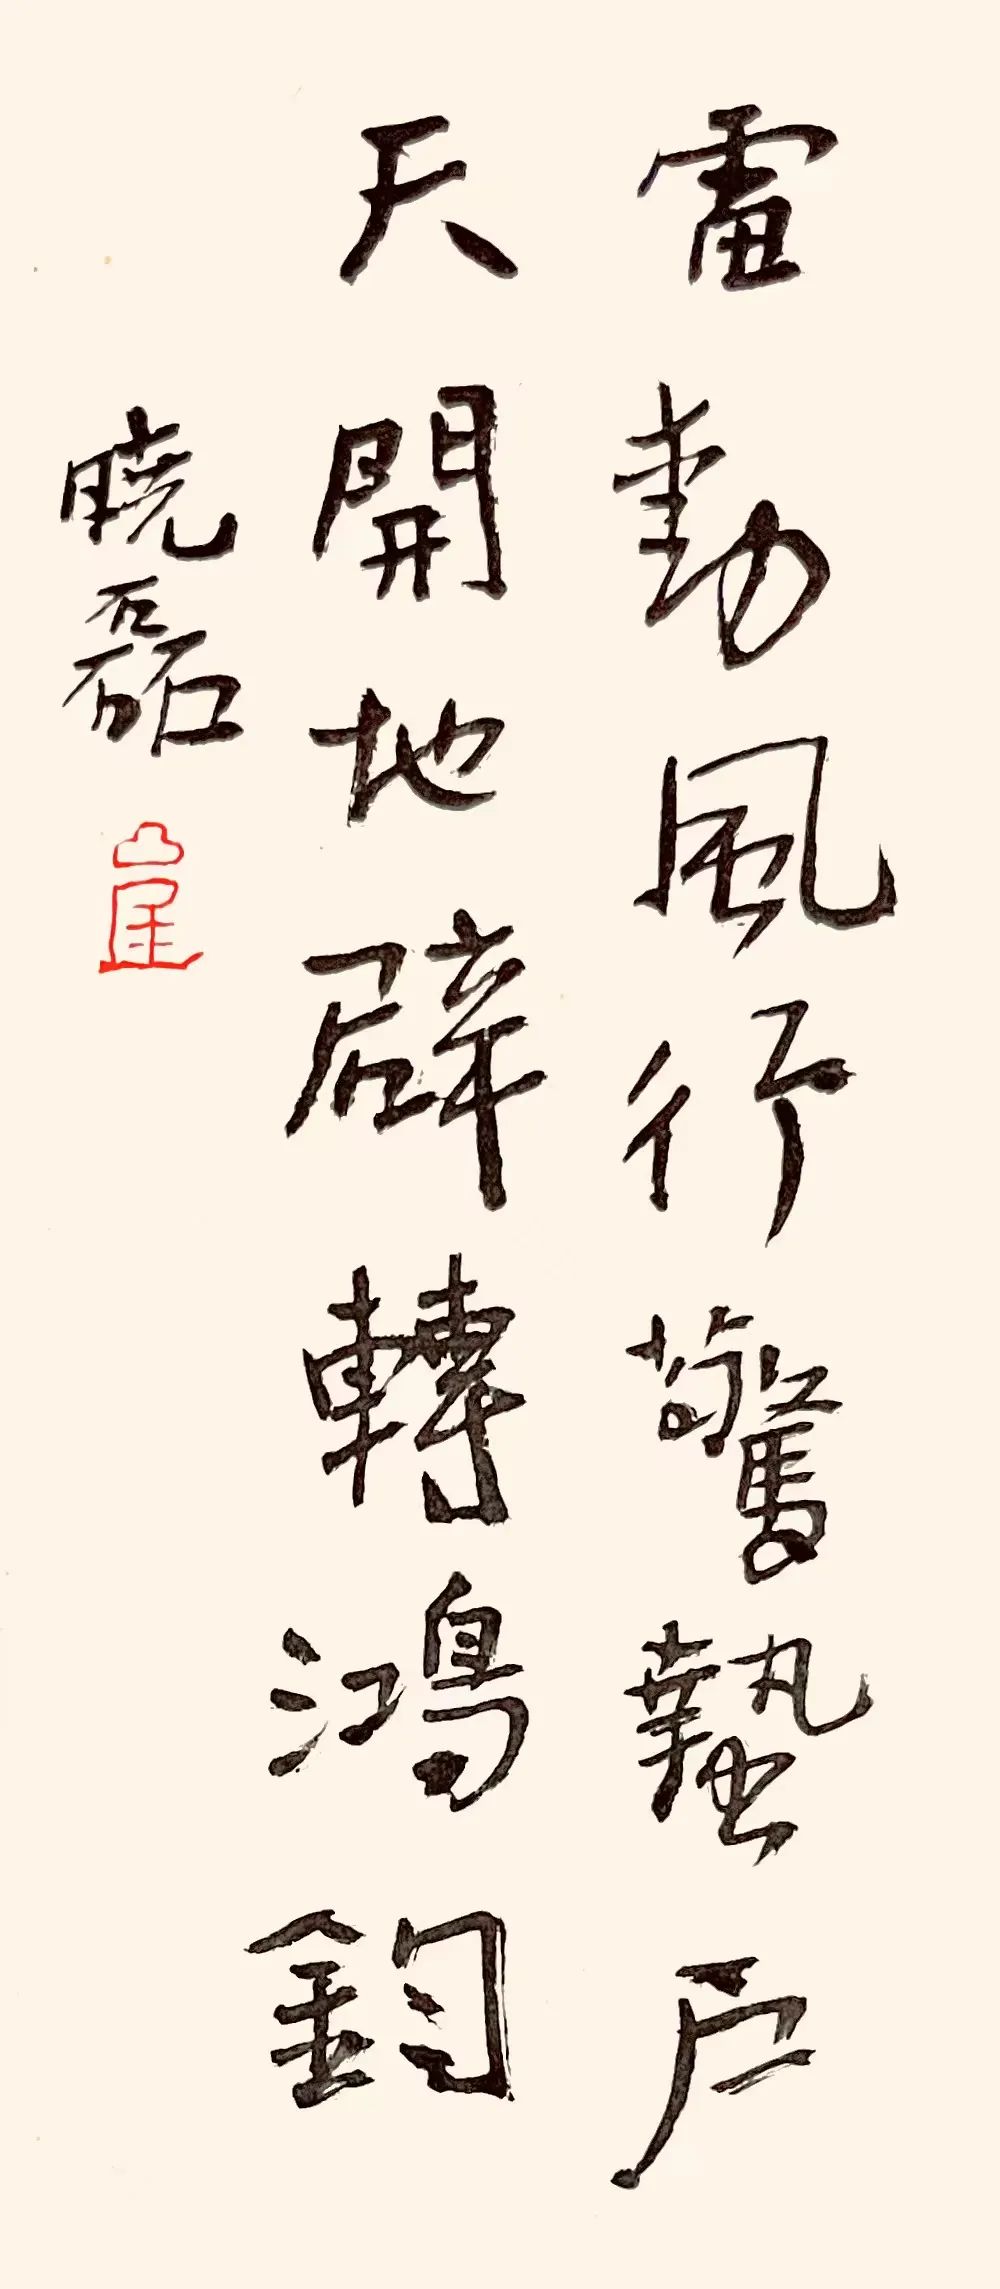 雷動風行驚蟄户
天開地辟轉鴻鈞
曉磊